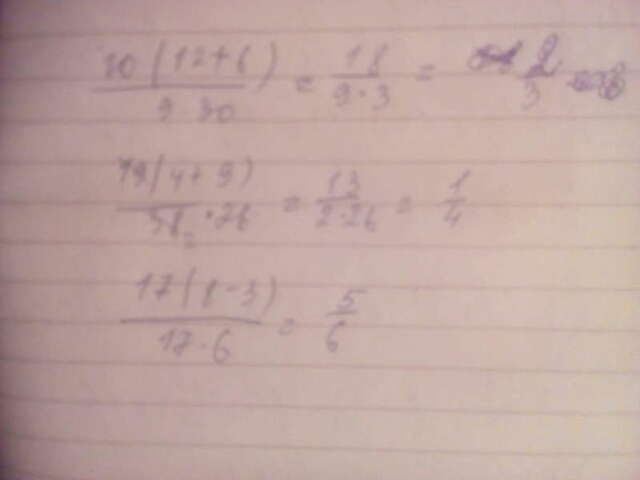 10(12+6) / 9·30 = 18 / 9·3 = 2 / 3
19(4+9) / 38₂·26 = 13 / 2·26 = 1 / 4
17(8-3) / 17·6 = 5 / 6